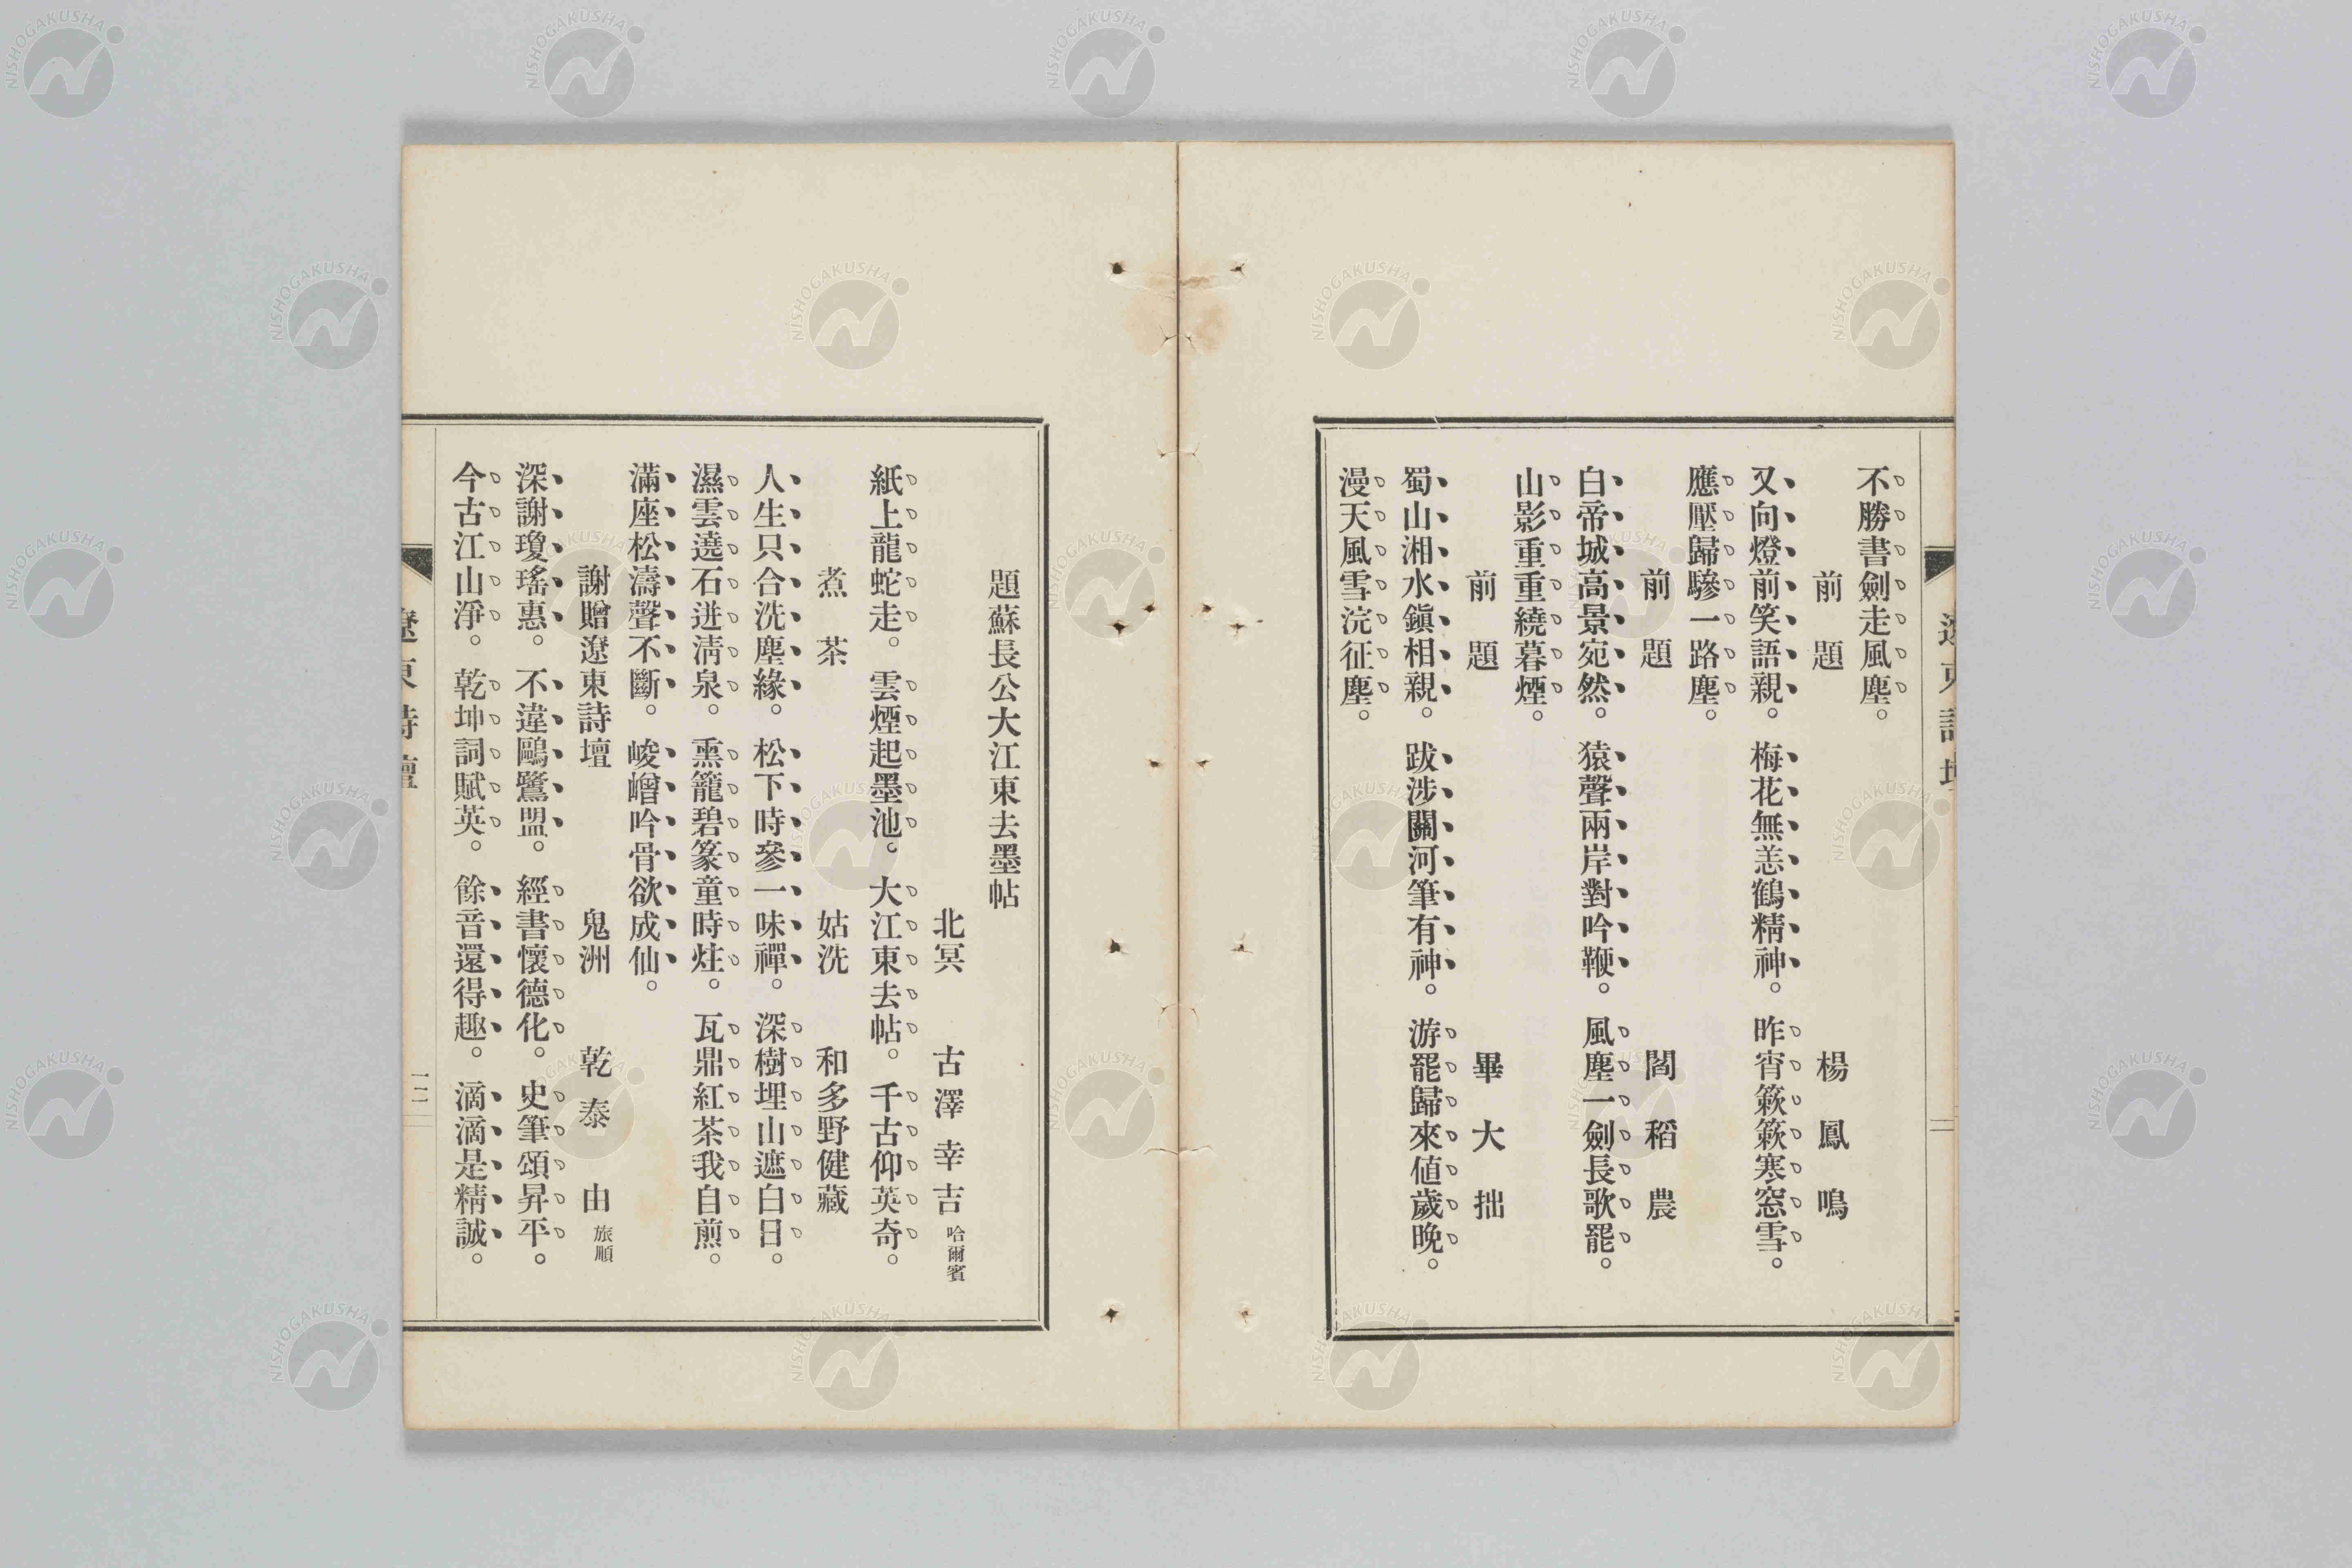 不勝書劍走風塵。
前題　楊鳳鳴
又向燈前笑語親。梅花無恙鶴精神。昨宵簌簌寒窓雪。
應壓歸驂一路塵。
前題　閻稻農
白帝城高景宛然。猿聲兩岸對吟鞭。風塵一劍長歌罷。
山影重重繞暮煙。
前題　畢大拙
蜀山湘水鎭相親。跋涉關河筆有神。游罷歸來値歲晚。
漫天風雪浣征塵。
題蘇長公大江東去墨帖
北冥　古澤幸吉 哈爾賓
紙上龍蛇走。雲煙起墨池。大江東去帖。千古仰英奇。
煮茶　姑洗　和多野健藏
人生只合洗塵緣。松下時參一味禪。深樹埋山遮白日。
濕雲遶石迸淸泉。熏籠碧篆童時炷。瓦鼎紅茶我自煎。
滿座松濤聲不斷。崚嶒吟骨欲成仙。
謝贈遼東詩壇　鬼洲　乾泰由 旅順
深謝瓊瑤惠。不違鷗鷺盟。經書懷德化。史筆頌昇平。
今古江山淨。乾坤詞賦英。餘音還得趣。滴滴是精誠。
遼東詩壇
一二
NISHOGAKUSHA